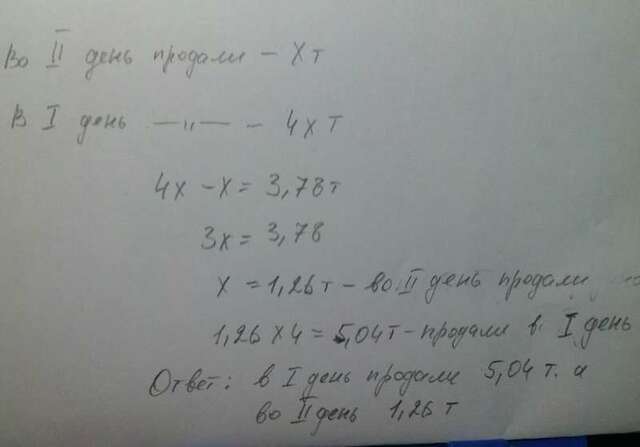 Во II день продали – Х т
В I день —〃— – 4х т
4х – х = 3,78 т
3х = 3,78
х = 1,26 т – во II день продали
1,26 х 4 = 5,04 т – продали в I день
Ответ: в I день продали 5,04 т. и
во II день 1,26 т